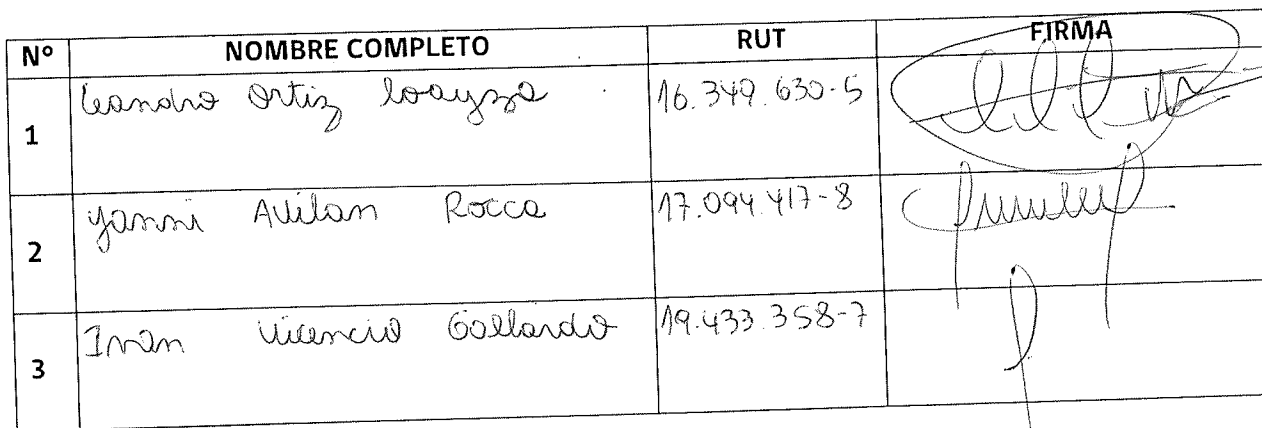 Nº NOMBRE COMPLETO RUT FIRMA
1 Leandro Ortiz Loayza 16.349.630-5
2 Yanni Avilan Rocca 17.094.417-8
3 Ivan Vicencio Gallardo 19.433.358-7